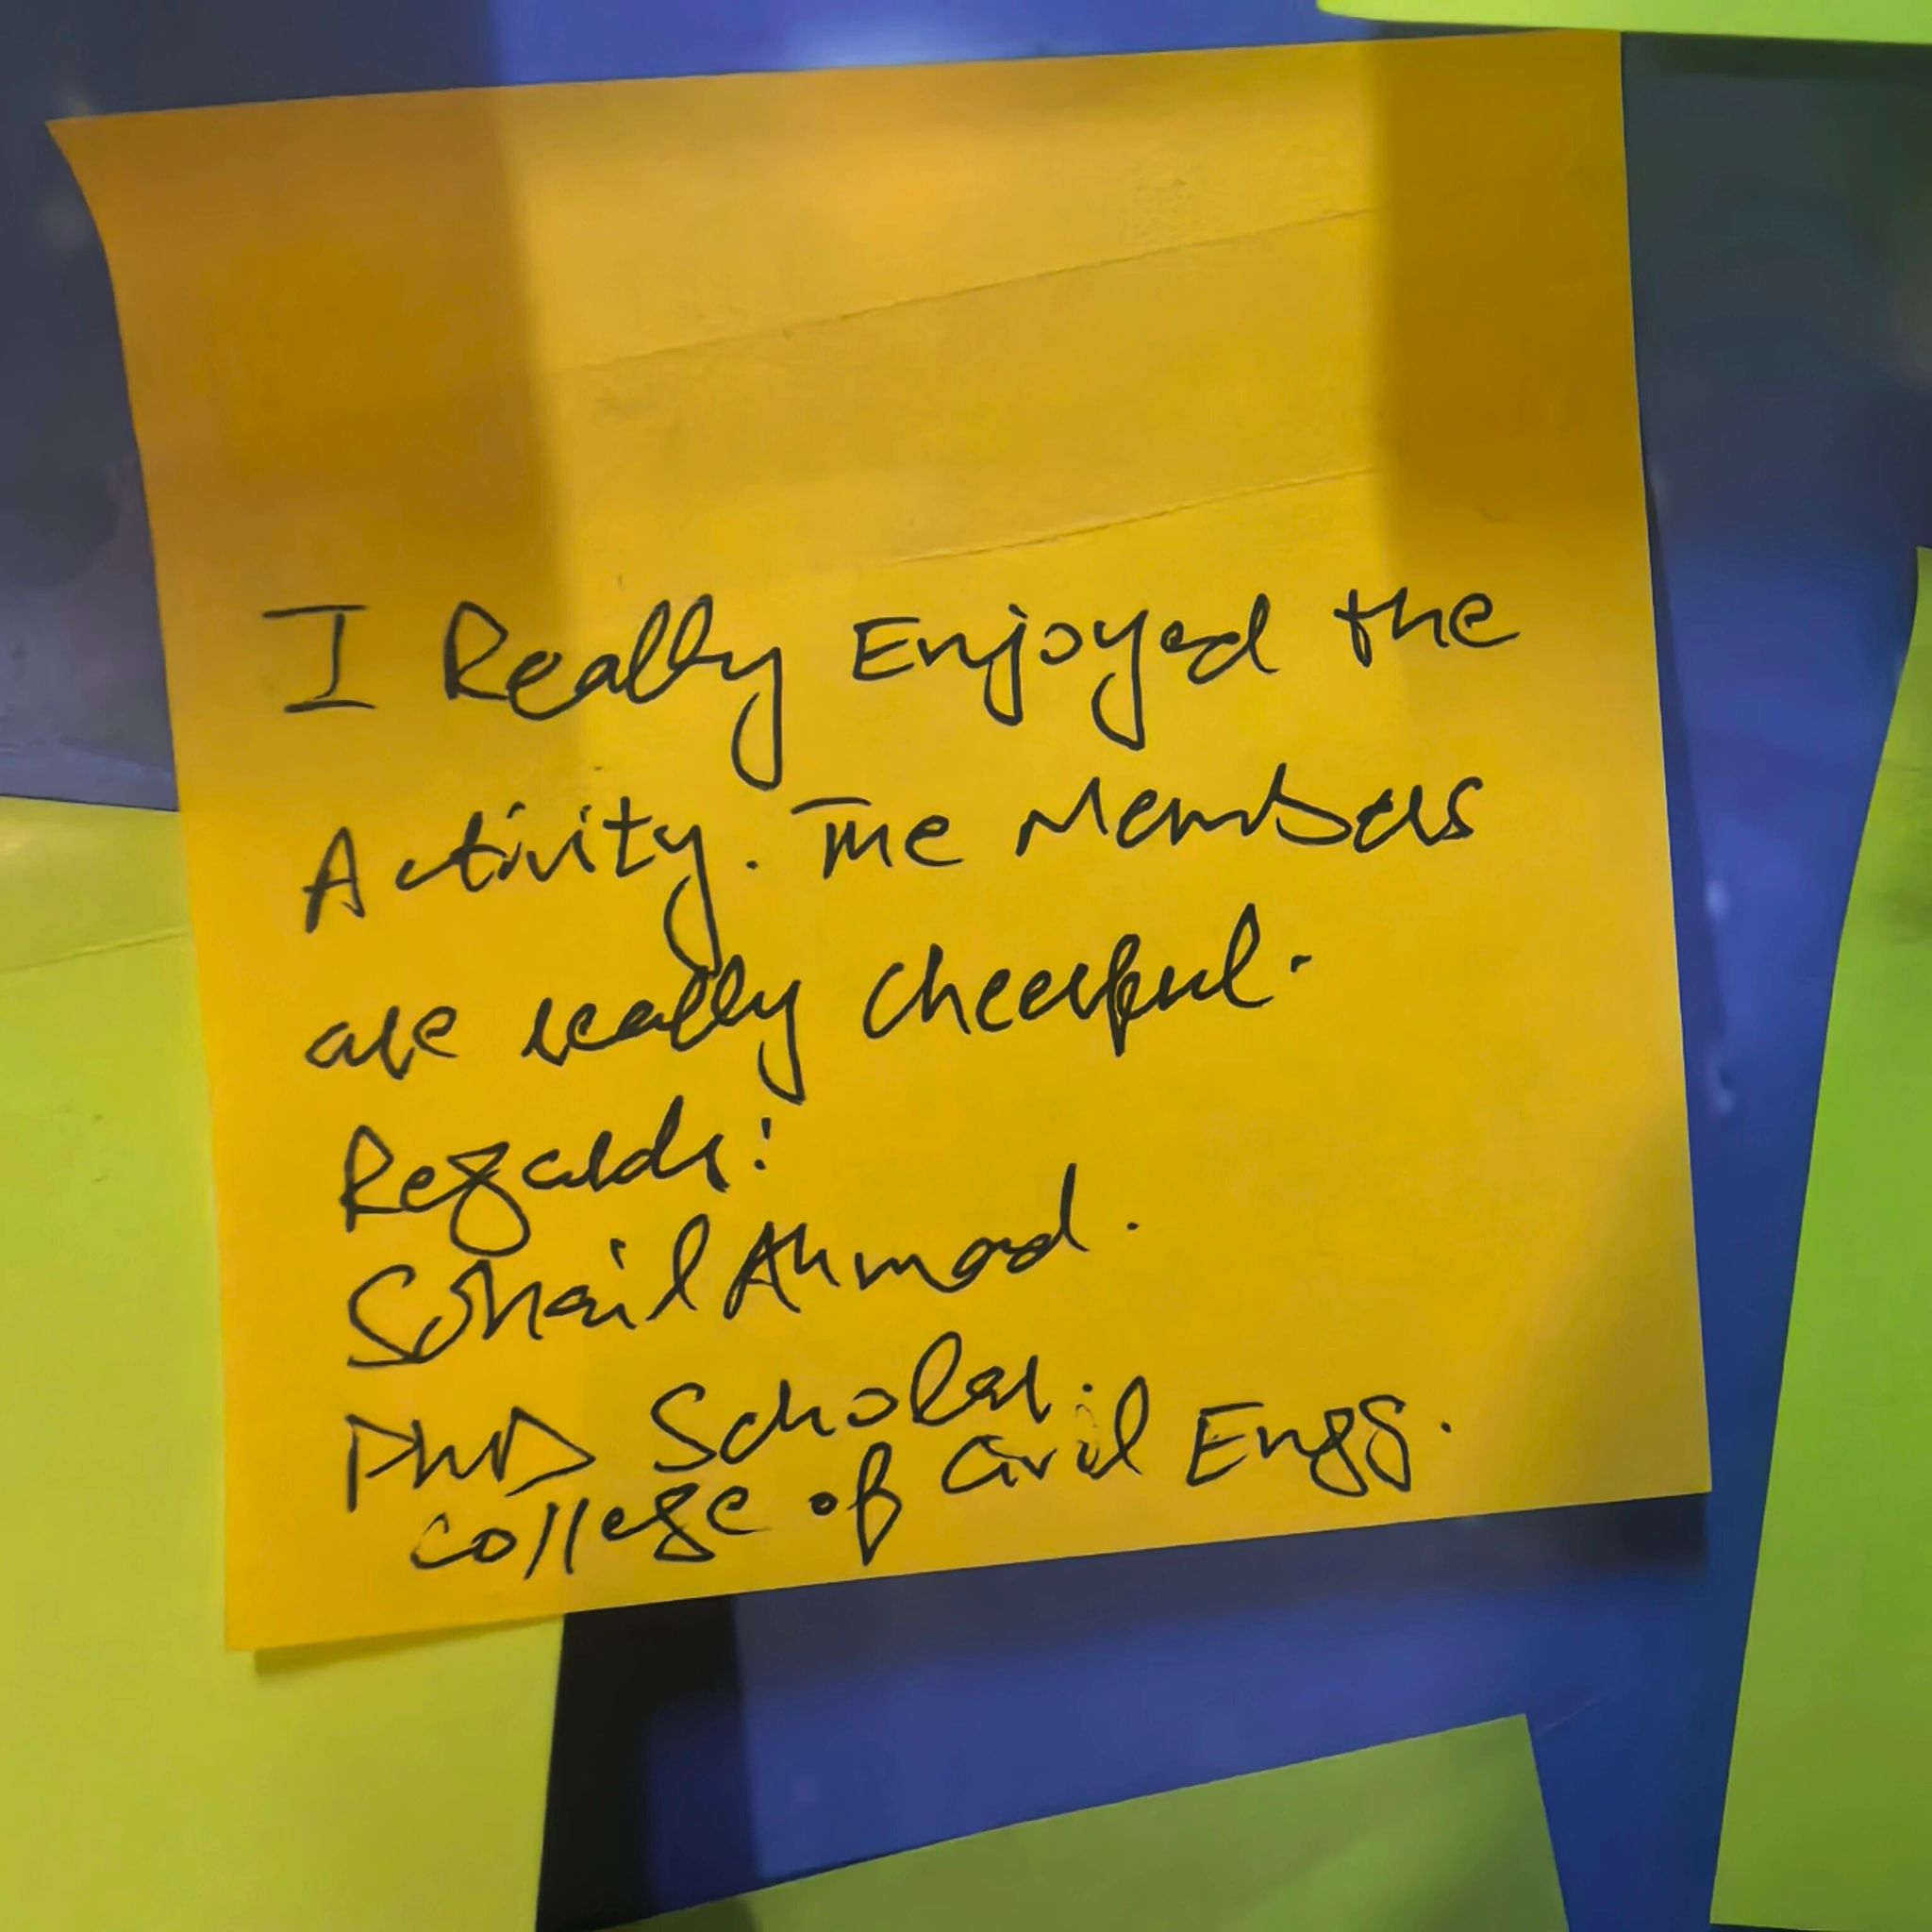 I Really Enjoyed the
Activity. The Members
are really cheerful.
Regards:
Sohail Ahmad.
PhD Scholar.
College of Civil Engg.